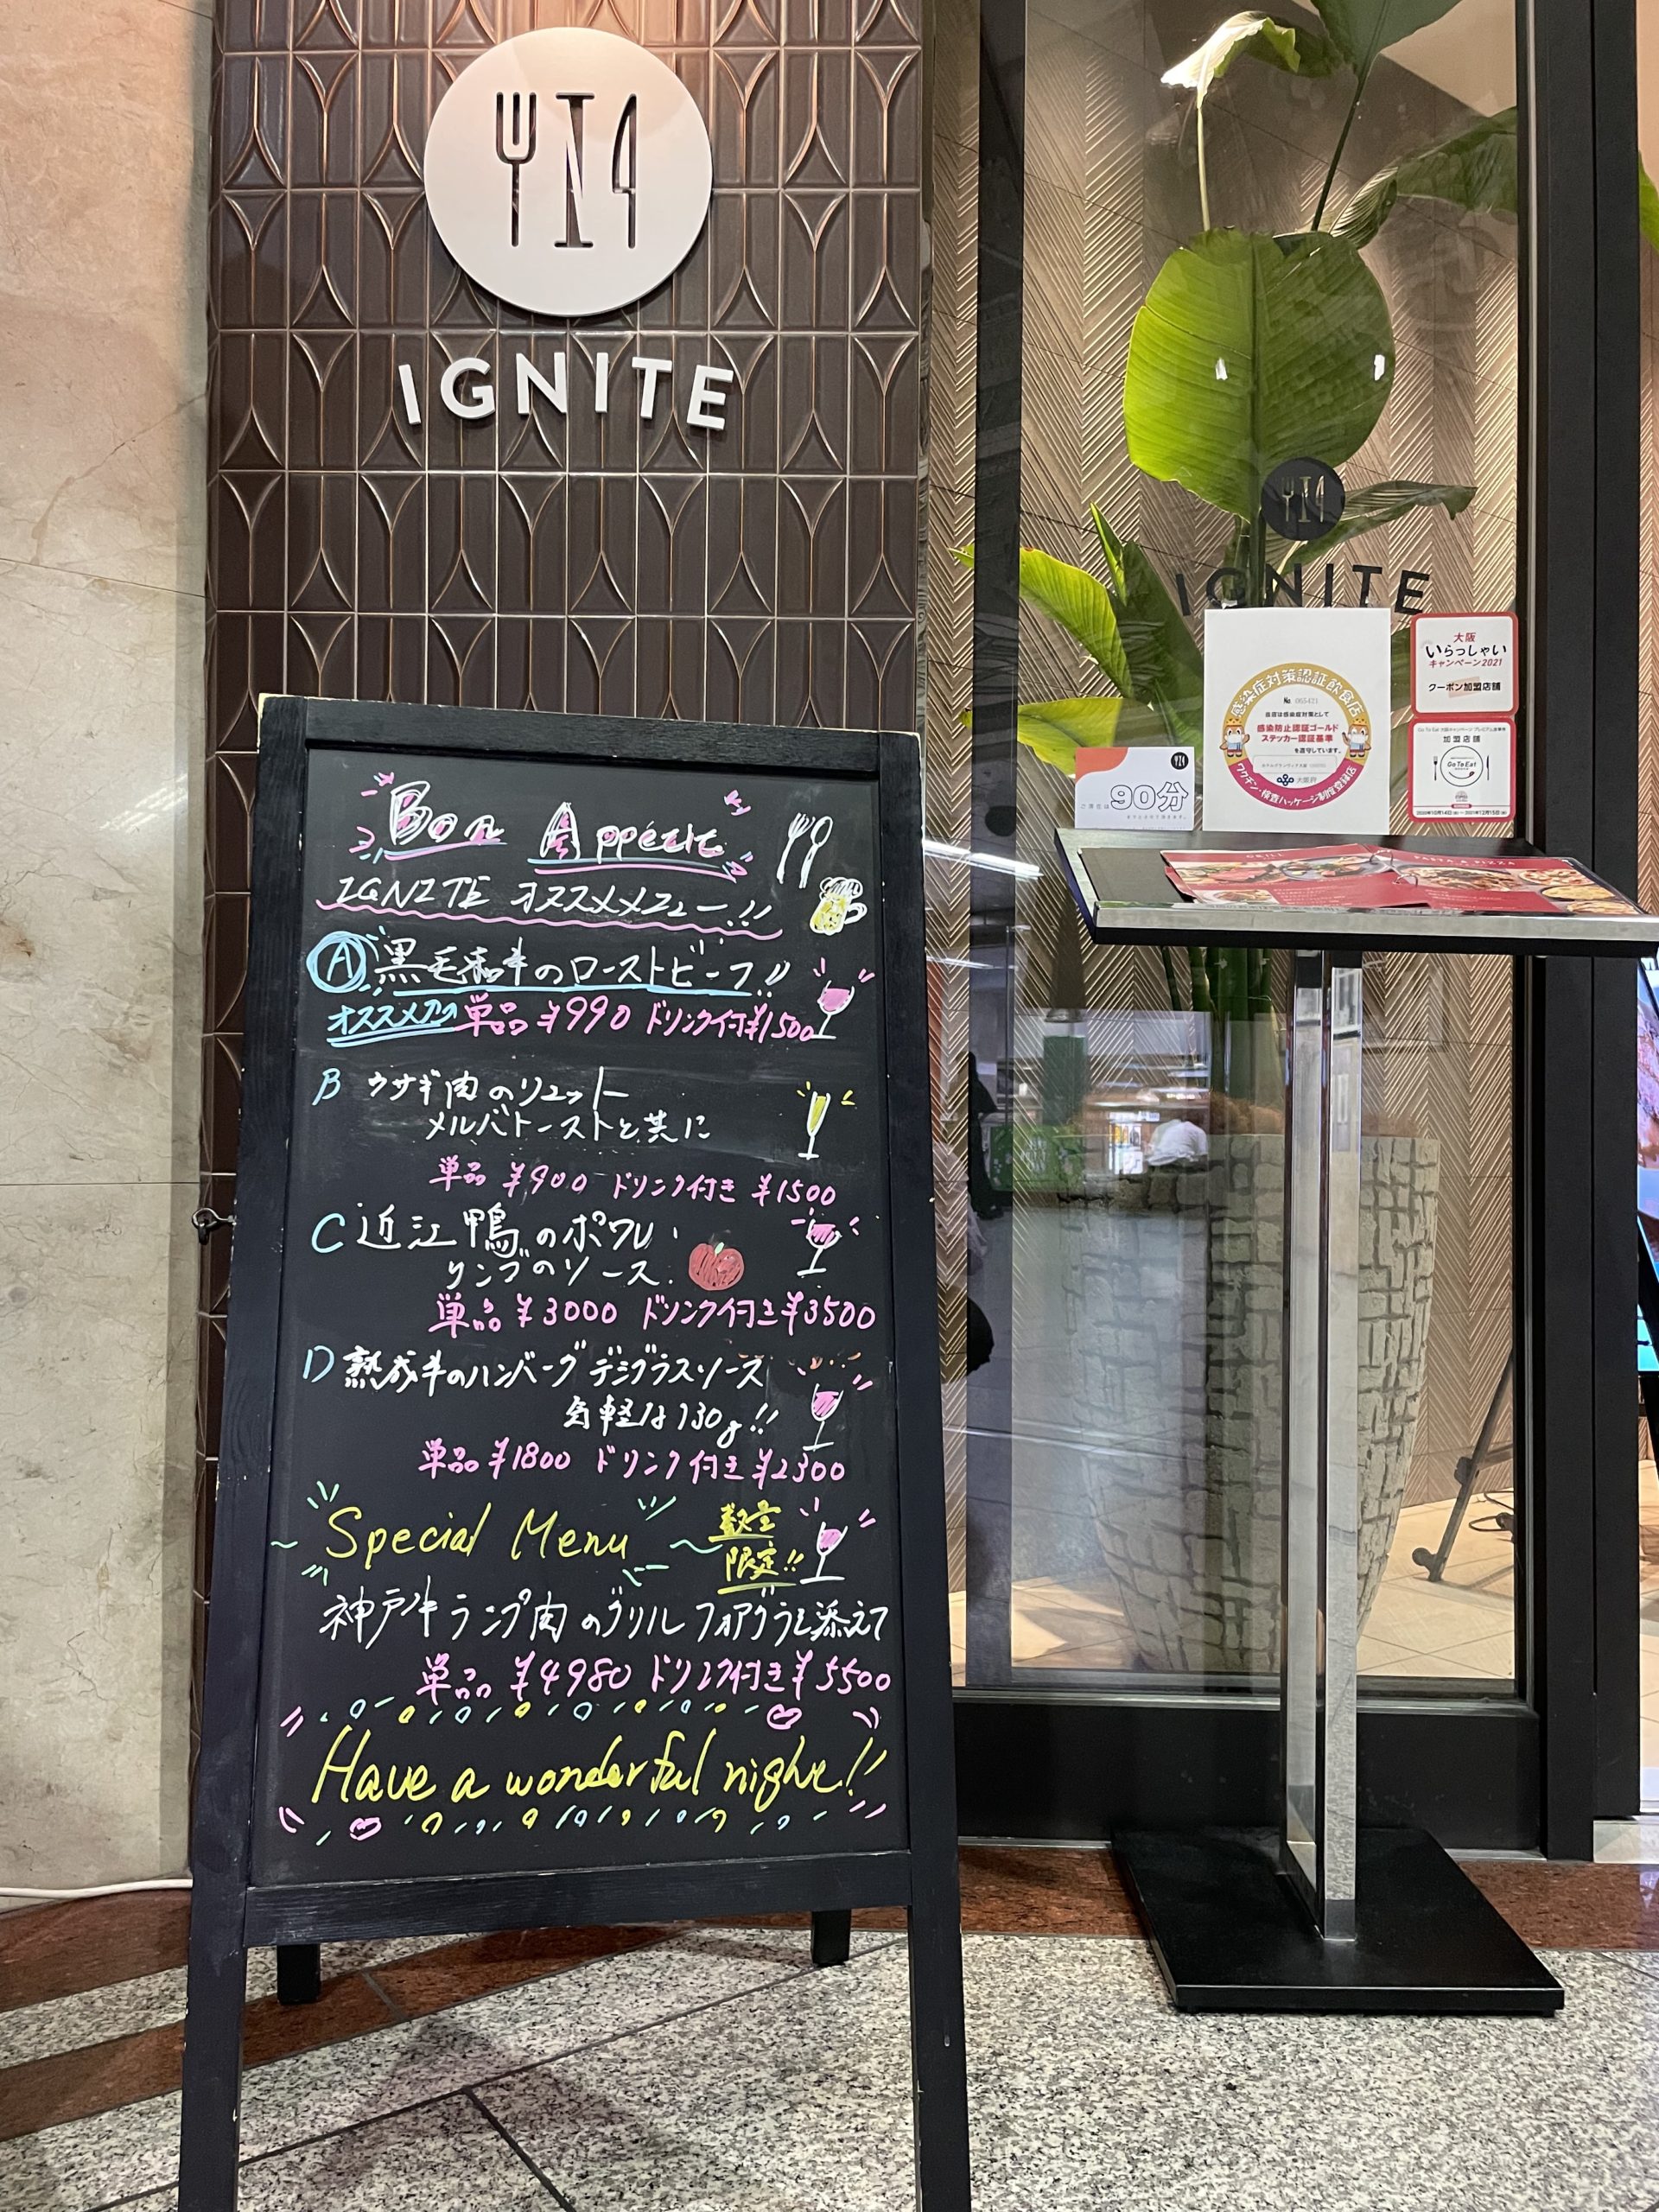 IGNITE
Bon Appétit
IGNITE オススメメニュー!!
A 黒毛和牛のローストビーフ!!
オススメ 単品 ¥990 ドリンク付 ¥1500
B ウサギ肉のリエット
メルバトーストと共に
単品 ¥900 ドリンク付き ¥1500
C 近江鴨のポワレ
リンゴのソース
単品 ¥3000 ドリンク付き ¥3500
D 熟成牛のハンバーグ デミグラスソース
気軽な130g!!
単品 ¥1800 ドリンク付き ¥2300
Special Menu
数量
限定!!
神戸牛ランプ肉のグリル フォアグラを添えて
単品 ¥4980 ドリンク付き ¥5500
Have a wonderful night!!
IGNITE
90分
感染症対策認証飲食店
当店は感染症対策として
感染防止認証ゴールド
ステッカー認証基準
を遵守しています。
大阪府
ワクチン・検査パッケージ制度登録店
大阪
いらっしゃい
キャンペーン2021
クーポン加盟店舗
加盟店舗
Go To Eat
GRILL
PASTA & PIZZA